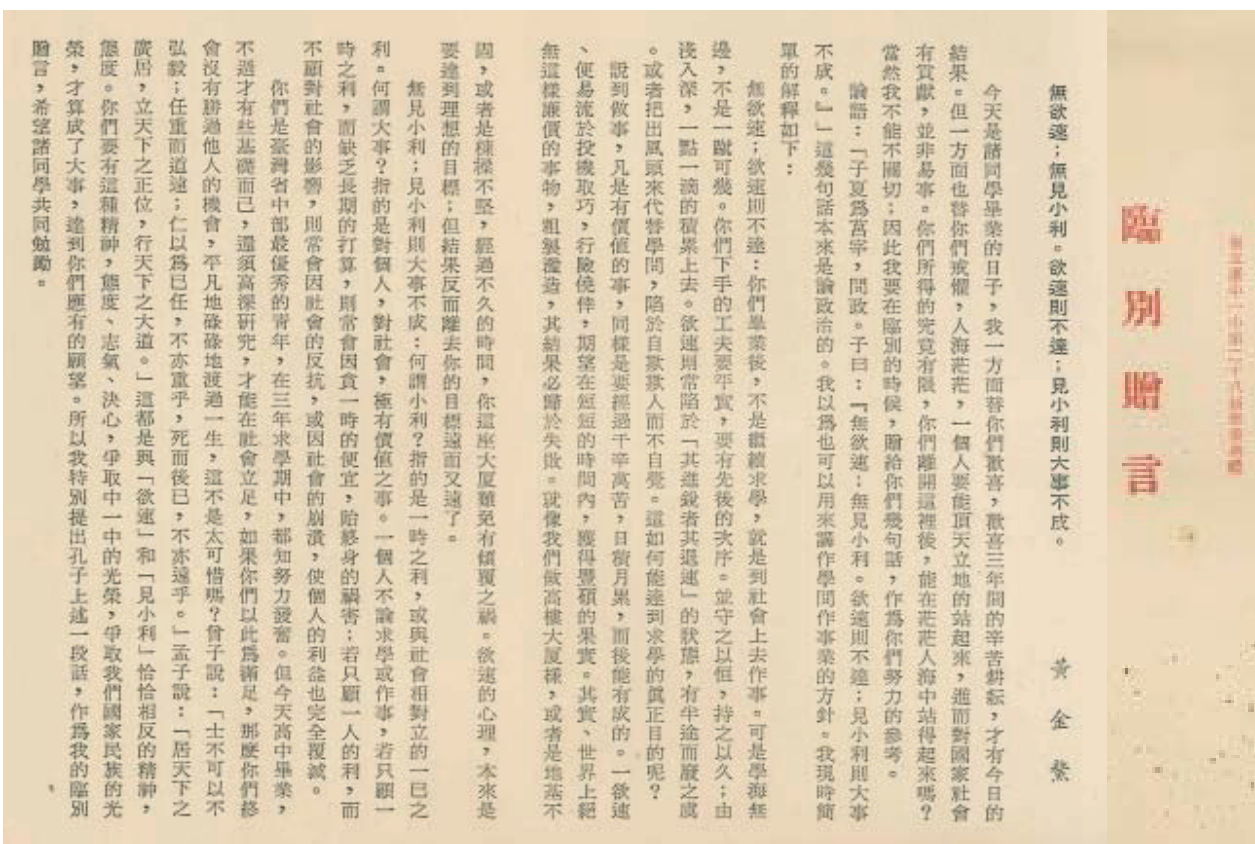 臨別贈言
無欲速；無見小利。欲速則不達；見小利則大事不成。
黃金鰲
今天是諸同學畢業的日子，我一方面替你們歡喜，歡喜三年間的辛苦耕耘，才有今日的
結果。但一方面也替你們戒懼，人海茫茫，一個人要能頂天立地的站起來，進而對國家社會
有貢獻，並非易事。你們所得的究竟有限，你們離開這裡後，能在茫茫人海中站得起來嗎？
當然我不能不關切；因此我要在臨別的時候，贈給你們幾句話，作爲你們努力的參考。
論語：「子夏爲莒宰，問政。子曰：『無欲速；無見小利。欲速則不達；見小利則大事
不成。』」這幾句話本來是論政治的。我以爲也可以用來講作學問作事業的方針。我現時簡
單的解釋如下：
無欲速；欲速則不達：你們畢業後，不是繼續求學，就是到社會上去作事。可是學海無
邊，不是一蹴可幾。你們下手的工夫要平實，要有先後的次序。並守之以恒，持之以久；由
淺入深，一點一滴的積累上去。欲速則常陷於「其進銳者其退速」的狀態，有半途而廢之虞
。或者把出風頭來代替學問，陷於自欺欺人而不自覺。這如何能達到求學的眞正目的呢？
說到做事，凡是有價值的事，同樣是要經過千辛萬苦，日積月累，而後能有成的。一欲速
、便易流於投機取巧，行險僥倖，期望在短短的時間內，獲得豐碩的果實。其實、世界上絕
無這樣廉價的事物，粗製濫造，其結果必歸於失敗。就像我們做高樓大厦樣，或者是地基不
固，或者是棟樑不堅，經過不久的時間，你這座大厦難免有傾覆之禍。欲速的心理，本來是
要達到理想的目標；但結果反而離去你的目標遠而又遠了。
無見小利；見小利則大事不成：何謂小利？指的是一時之利，或與社會相對立的一已之
利。何謂大事？指的是對個人，對社會，極有價值之事。一個人不論求學或作事，若只顧一
時之利，而缺乏長期的打算，則常會因貪一時的便宜，貽終身的禍害；若只顧一人的利，而
不顧對社會的影響，則常會因社會的反抗，或因社會的崩潰，使個人的利益也完全覆滅。
你們是臺灣省中部最優秀的青年，在三年求學期中，都知努力發奮。但今天高中畢業，
不過才有些基礎而已，還須高深研究，才能在社會立足，如果你們以此爲滿足，那麼你們終
會沒有勝過他人的機會，平凡地碌碌地渡過一生，這不是太可惜嗎？曾子說：「士不可以不
弘毅；任重而道遠；仁以爲已任，不亦重乎，死而後已，不亦遠乎。」孟子說：「居天下之
廣居，立天下之正位，行天下之大道。」這都是與「欲速」和「見小利」恰恰相反的精神，
態度。你們要有這種精神，態度、志氣、決心，爭取中一中的光榮，爭取我們國家民族的光
榮，才算成了大事，達到你們應有的願望。所以我特別提出孔子上述一段話，作爲我的臨別
贈言，希望諸同學共同勉勵。